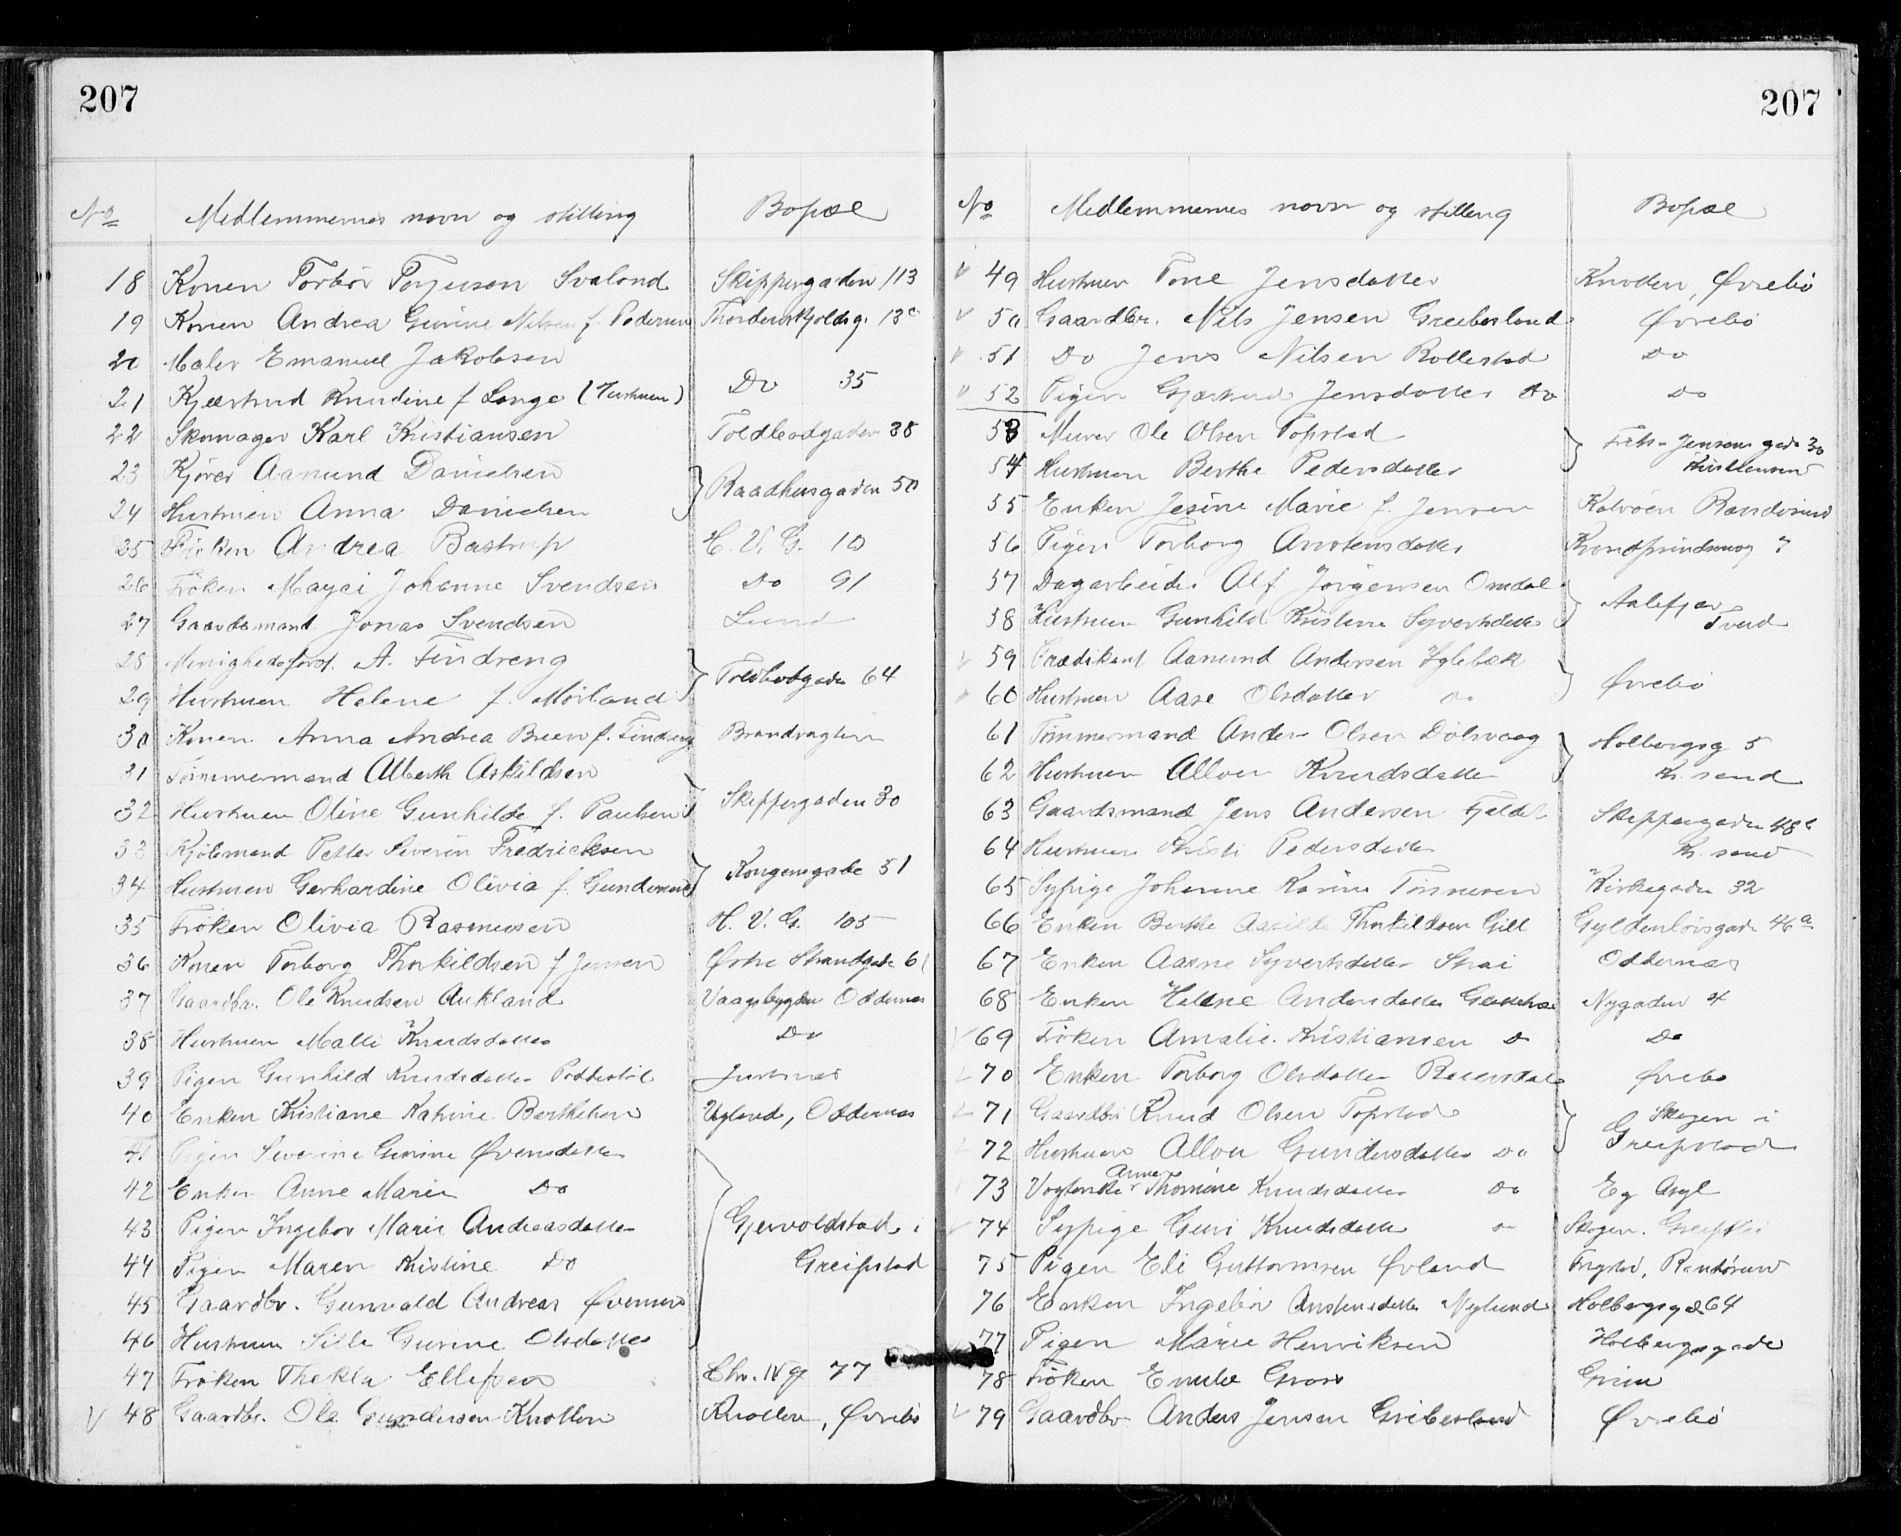 207
No Medlemmernes navn og stilling Bopæl
18 Konen Torbör Torjuson Svaland Skippergaden 113
19 Konen Andrea Gurine Nilsen f. Pedersen Thordenskjoldsg. 13c
20 Maler Emanuel Jakobsen
21 Kjærstrud Knudine f Lange (Hustruen) Do 35
22 Skomager Karl Kristiansen Toldbodgaden 38
23 Kjörer Aanund Danielsen
24 Hustruen Anna Danielsen } Raadhusgaden 50
25 Fröken Andrea Bastrup H. V. G. 10
26 Fröken Mayai Johanne Svendsen Do 91
27 Gaardsmand Jonas Svendsen Lund
28 Menighedsforst. A. Tindreng
29 Hustruen Helene f. Mörland } Toldbodgaden 64
30 Konen Anna Andrea Breen f. Tindreng Brandvagten
31 Tömmermand Alberth Askildsen
32 Hustruen Oline Gunhilde f. Paulsen } Skippergaden 30
33 Kjölsmand Petter Severin Fredricksen
34 Hustruen Gerhardine Olivia f. Gundersen } Kongensgade 51
35 Fröken Olivia Rasmussen H. V. G. 105
36 Konen Torborg Thorkildsen f Jensen Östre Strandgade 61
37 Gaardbr. Ole Knudsen Aukland Vaagsbygden Oddernes
38 Hustruen Malli Knudsdatter Do
39 Pigen Gunhild Knudsdatter Justnes
40 Enken Kristiane Katrine Berthelsen Ugland, Oddernes
41 Pigen Severine Gurine Øvensdatter
42 Enken Anne Marie Do
43 Pigen Ingebor Marie Andreasdatter Gjervoldstad i
44 Pigen Maren Kristine Do Greipstad
45 Gaardbr. Gunvald Andreas Øvensen
46 Hustruen Sille Gurine Olsdatter
47 Fröken Thekla Ellefsen Chr. IV g. 77
V 48 Gaardbr. Ole Gundersen Knotten Knotten, Øvrebö
207
No Medlemmernes navn og stilling Bopæl
V 49 Hustruen Tone Jensdatter Knoden, Øvrebö
V 50 Gaardbr. Nils Jensen Greibesland Øvrebö
V 51 Do Jens Nilsen Rollestad Do
V 52 Pigen Gjærtrud Jensdatter Do Do
53 Murer Ole Olsen Topstad
54 Hustruen Berthe Pedersdatter } Jensens gade 30
55 Enken Jesine Marie f. Jensen Kalvöen Randösund
56 Pigen Torborg Anstensdatter Krondprindsensg 7
57 Dagarbeider Alf Jörgensen Omdal
58 Hustruen Gunhild Kristine Syvertsdatter } Aalefjær, Tveid
V 59 Prædikant Aanund Andersen Iglebæk
V 60 Hustruen Aase Olsdatter Do } Øvrebö
61 Tömmermand Anders Olsen Dölsvaag Holbergsg 5
62 Hustruen Allou Knudsdatter } Kr. sand
63 Gaardsmand Jens Andersen Fjeldet Skippergaden 48b
64 Hustruen Kristi Pedersdatter Kr. sand
65 Sypige Johanne Karine Tönnesen Kirkegaden 32
66 Enken Berthe Aasilde Thorkildsen Gill Gyldenlövsgade 46a
67 Enken Aasne Syvertsdatter Strai Oddernes
68 Enken Helene Andersdatter Nygaden 4
V 69 Fröken Amalie Kristiansen Do Do
V 70 Enken Torborg Olsdatter Reiersdal Øvrebö
V 71 Gaardbr Knud Olsen Topstad Skogen i
V 72 Hustruen Allou Gundersdatter Do } Greipstad
73 Vogterske Anne Thomine Knudsdatter Do Eg Asyl
V 74 Sypige Guri Knudsdatter Do Skogen. Greipst.
75 Pigen Eli Guttormsen Øvland Frystd, Randösund
76 Enken Ingebör Anstensdatter Nylund Holbergsgd 64
77 Pigen Marie Henriksen Holbergsgade
78 Fröken Emilie Gross Grim
V 79 Gaardbr Anders Jensen Gribesland Øvrebö